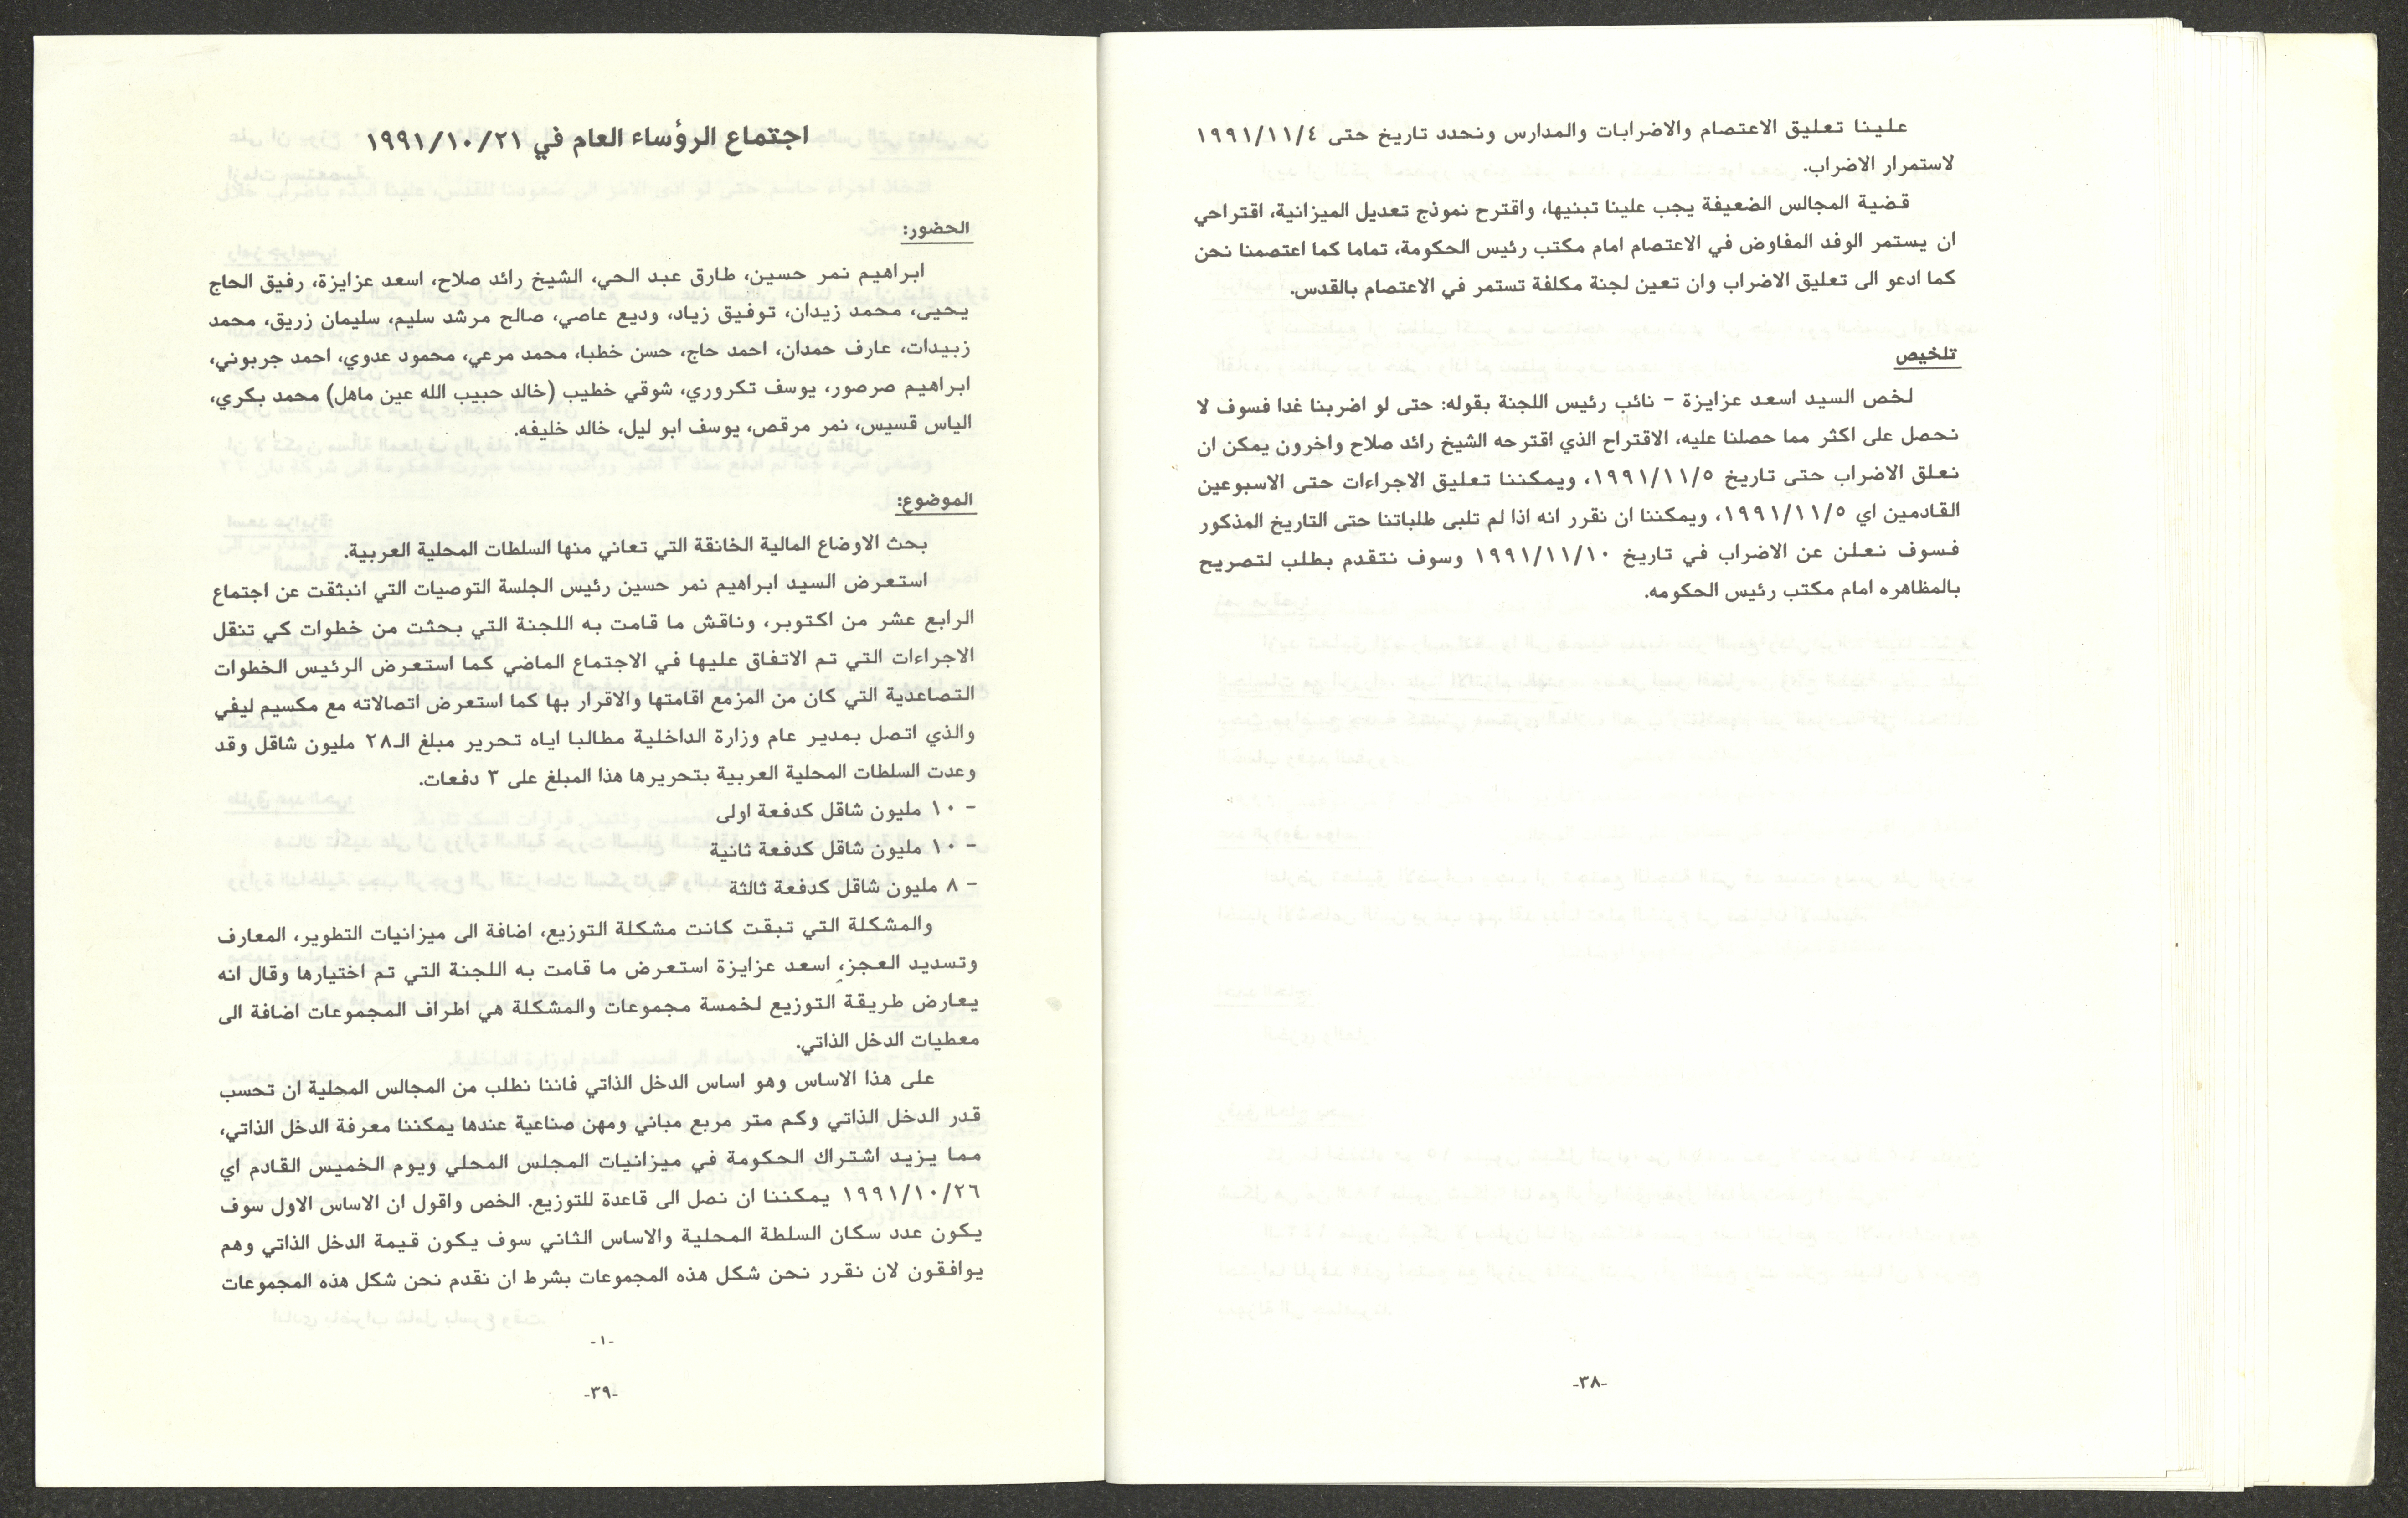 علينا تعليق الاعتصام والاضرابات والمدارس ونحدد تاريخ حتى ١٩٩١/١١/٤
لاستمرار الاضراب.
قضية المجالس الضعيفة يجب علينا تبنيها، واقترح نموذج تعديل الميزانية، اقتراحي
ان يستمر الوفد المفاوض في الاعتصام امام مكتب رئيس الحكومة، تماما كما اعتصمنا نحن
كما ادعو الى تعليق الاضراب وان تعين لجنة مكلفة تستمر في الاعتصام بالقدس.
تلخيص
لخص السيد اسعد عزايزة - نائب رئيس اللجنة بقوله: حتى لو اضربنا غدا فسوف لا
نحصل على اكثر مما حصلنا عليه، الاقتراح الذي اقترحه الشيخ رائد صلاح واخرون يمكن ان
نعلق الاضراب حتى تاريخ ١٩٩١/١١/٥، ويمكننا تعليق الاجراءات حتى الاسبوعين
القادمين اي ١٩٩١/١١/٥، ويمكننا ان نقرر انه اذا لم تلبى طلباتنا حتى التاريخ المذكور
فسوف نعلن عن الاضراب في تاريخ ١٩٩١/١١/١٠ وسوف نتقدم بطلب لتصريح
بالمظاهره امام مكتب رئيس الحكومه.
-٣٨-
اجتماع الرؤساء العام في ١٩٩١/١٠/٢١
الحضور:
ابراهيم نمر حسين، طارق عبد الحي، الشيخ رائد صلاح، اسعد عزايزة، رفيق الحاج
يحيى، محمد زيدان، توفيق زياد، وديع عاصي، صالح مرشد سليم، سليمان زريق، محمد
زبيدات، عارف حمدان، احمد حاج، حسن خطبا، محمد مرعي، محمود عدوي، احمد جربوني،
ابراهيم صرصور، يوسف تكروري، شوقي خطيب (خالد حبيب الله عين ماهل) محمد بكري،
الياس قسيس، نمر مرقص، يوسف ابو ليل، خالد خليفه.
الموضوع:
بحث الاوضاع المالية الخانقة التي تعاني منها السلطات المحلية العربية.
استعرض السيد ابراهيم نمر حسين رئيس الجلسة التوصيات التي انبثقت عن اجتماع
الرابع عشر من اكتوبر، وناقش ما قامت به اللجنة التي بحثت من خطوات كي تنقل
الاجراءات التي تم الاتفاق عليها في الاجتماع الماضي كما استعرض الرئيس الخطوات
التصاعدية التي كان من المزمع اقامتها والاقرار بها كما استعرض اتصالاته مع مكسيم ليفي
والذي اتصل بمدير عام وزارة الداخلية مطالبا اياه تحرير مبلغ الـ٢٨ مليون شاقل وقد
وعدت السلطات المحلية العربية بتحريرها هذا المبلغ على ٣ دفعات.
- ١٠ مليون شاقل كدفعة اولى
- ١٠ مليون شاقل كدفعة ثانية
- ٨ مليون شاقل كدفعة ثالثة
والمشكلة التي تبقت كانت مشكلة التوزيع، اضافة الى ميزانيات التطوير، المعارف
وتسديد العجز، اسعد عزايزة استعرض ما قامت به اللجنة التي تم اختيارها وقال انه
يعارض طريقة التوزيع لخمسة مجموعات والمشكلة هي اطراف المجموعات اضافة الى
معطيات الدخل الذاتي.
على هذا الاساس وهو اساس الدخل الذاتي فاننا نطلب من المجالس المحلية ان تحسب
قدر الدخل الذاتي وكم متر مربع مباني ومهن صناعية عندها يمكننا معرفة الدخل الذاتي،
مما يزيد اشتراك الحكومة في ميزانيات المجلس المحلي ويوم الخميس القادم اي
١٩٩١/١٠/٢٦ يمكننا ان نصل الى قاعدة للتوزيع. الخص واقول ان الاساس الاول سوف
يكون عدد سكان السلطة المحلية والاساس الثاني سوف يكون قيمة الدخل الذاتي وهم
يوافقون لان نقرر نحن شكل هذه المجموعات بشرط ان نقدم نحن شكل هذه المجموعات
-١-
-٣٩-